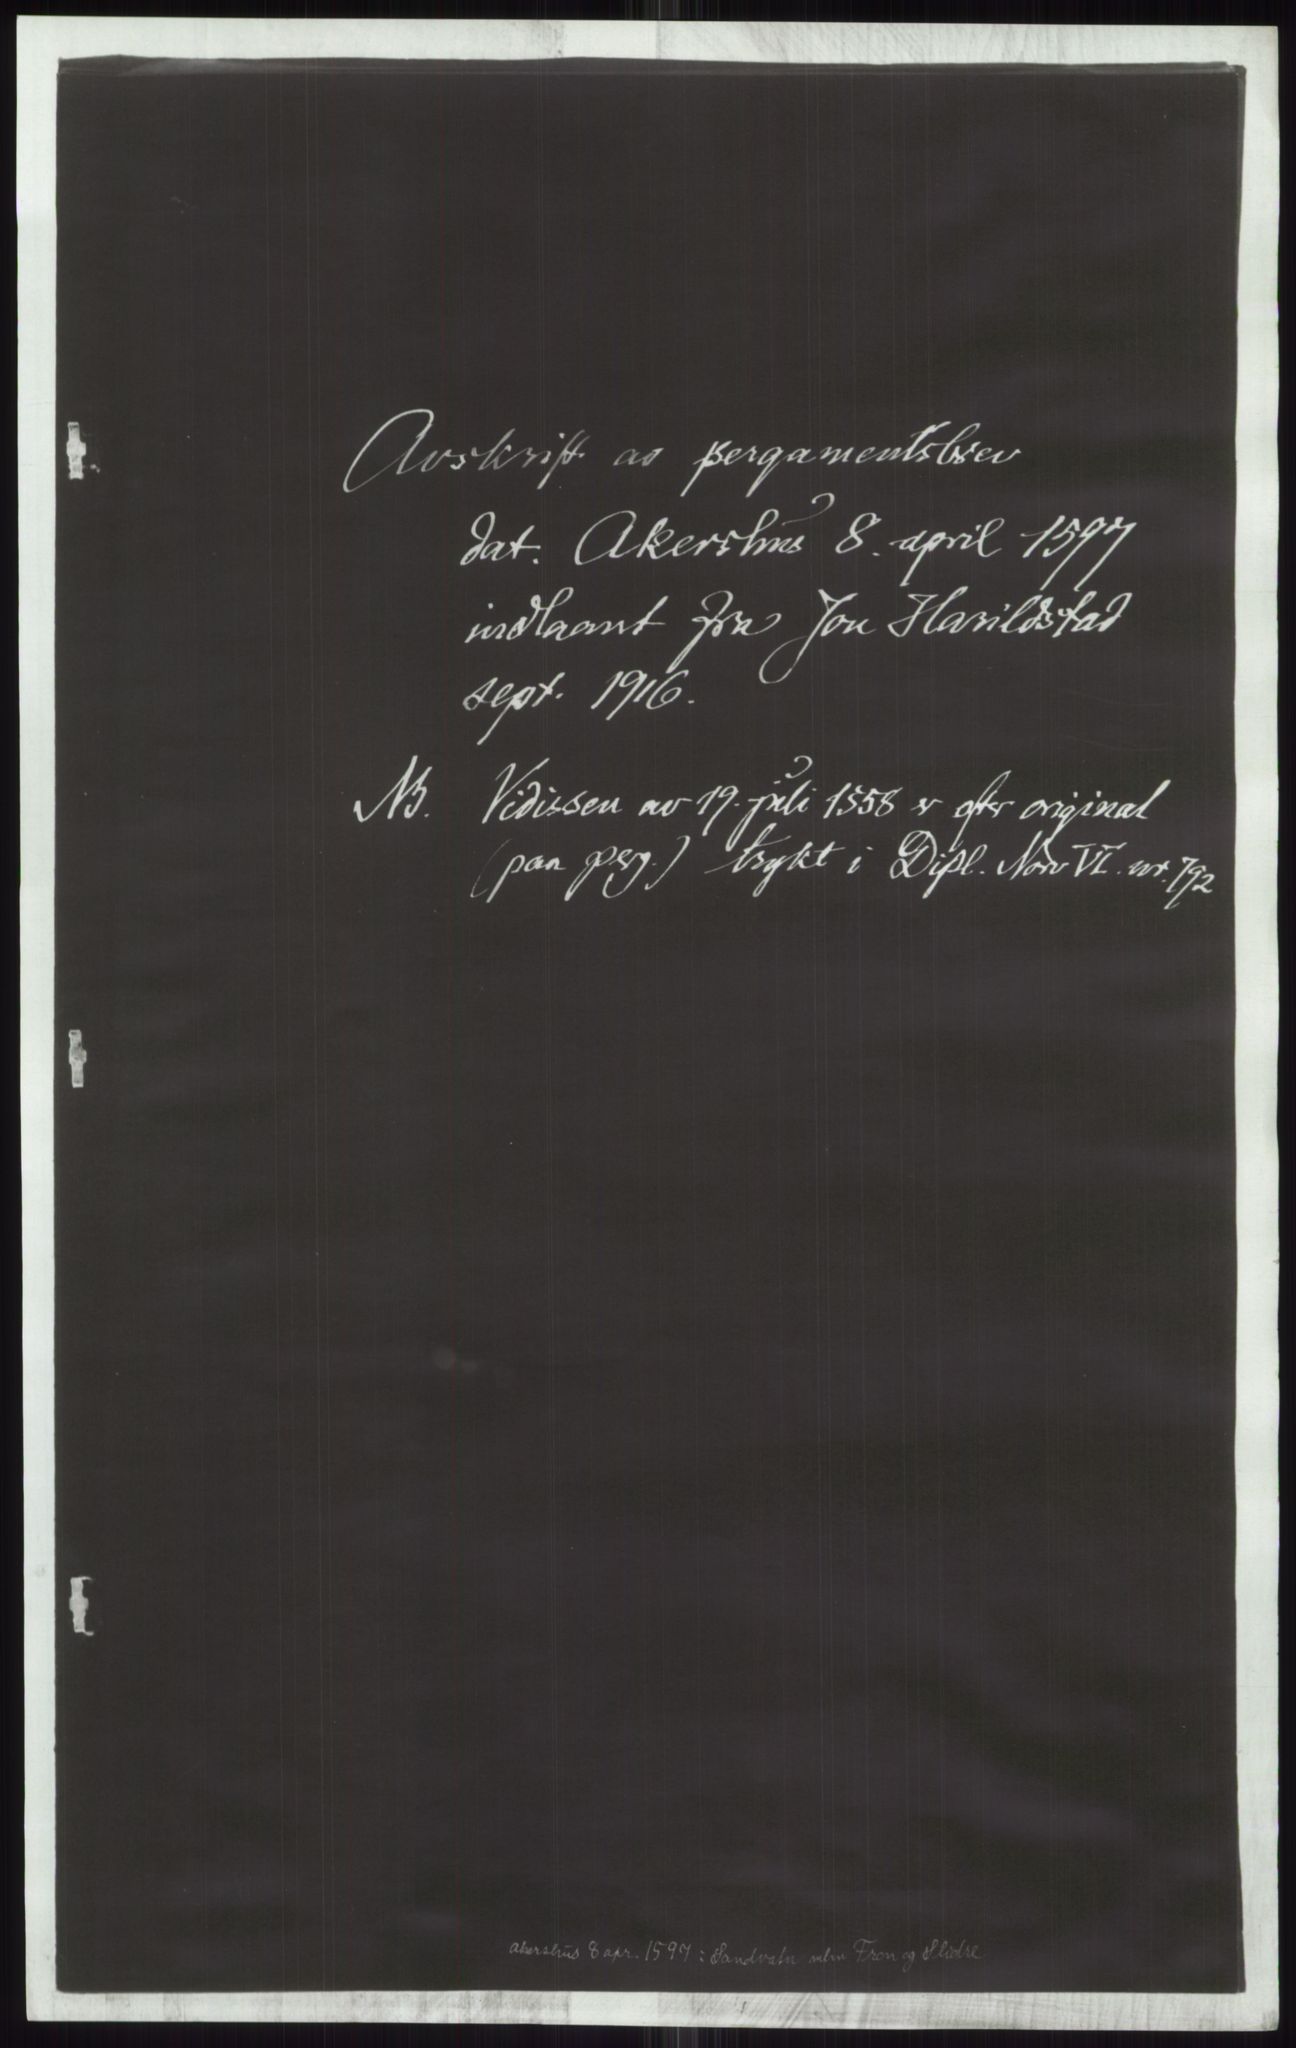 Avskrift av pergamentsbrev
dat. Akershus 8. april 1597
indlaant fra Jon Harildstad
sept. 1916.
NB. Vidissen av 19. juli 1558 er efter original
(paa perg.) trykt i Dipl. Norv VI. nr. 792
Akershus 8 apr. 1597: Sandvatn mlm Fron og Slidre